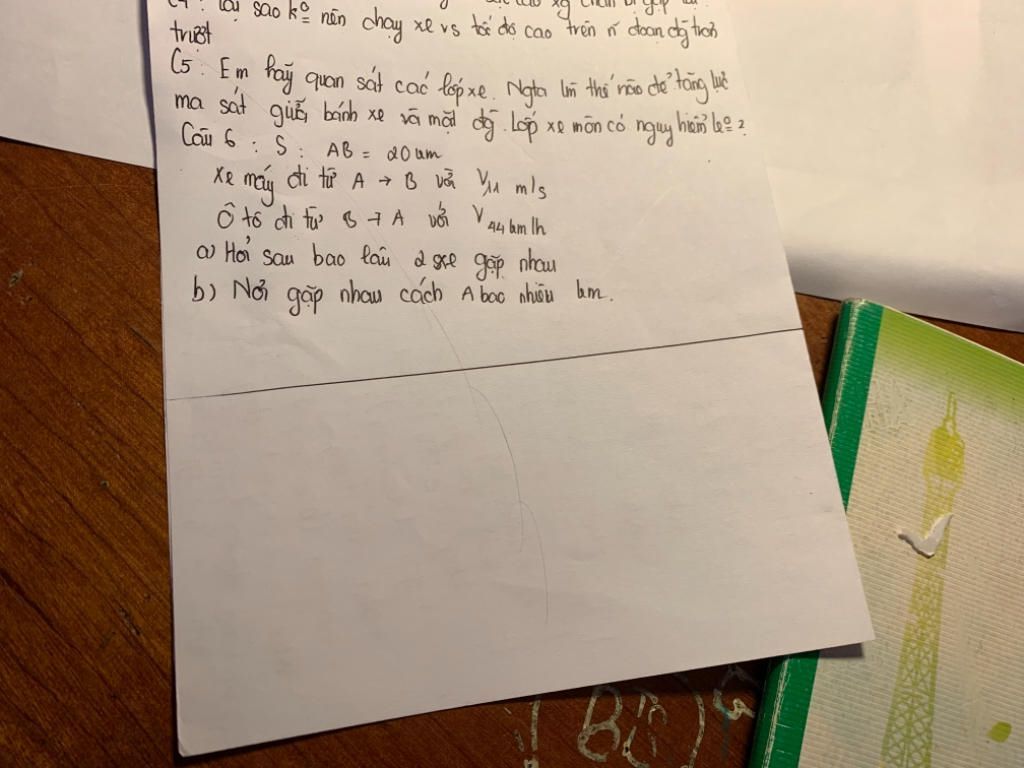 C4: Tại sao kº nên chạy xe vs tốc độ cao trên n' đoạn đg trơn
trượt
C5: Em hãy quan sát các lốp xe. Ngta lm thế nào để tăng lực
ma sát giữa bánh xe và mặt đg. Lốp xe mòn có nguy hiểm kº?
Câu 6: S: AB = 20 km
xe máy đi từ A → B với V11 m/s
Ô tô đi từ B → A với V44 km/h
a) Hỏi sau bao lâu 2 xe gặp nhau
b) Nơi gặp nhau cách A bao nhiêu km.